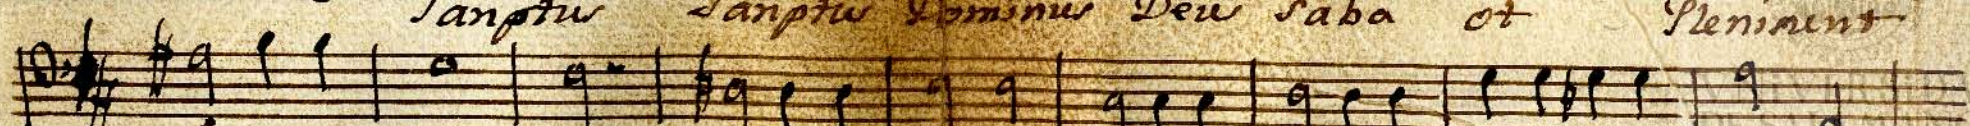 Sanptus Sanptus Dominus Deus Saba ot Pleni sunt